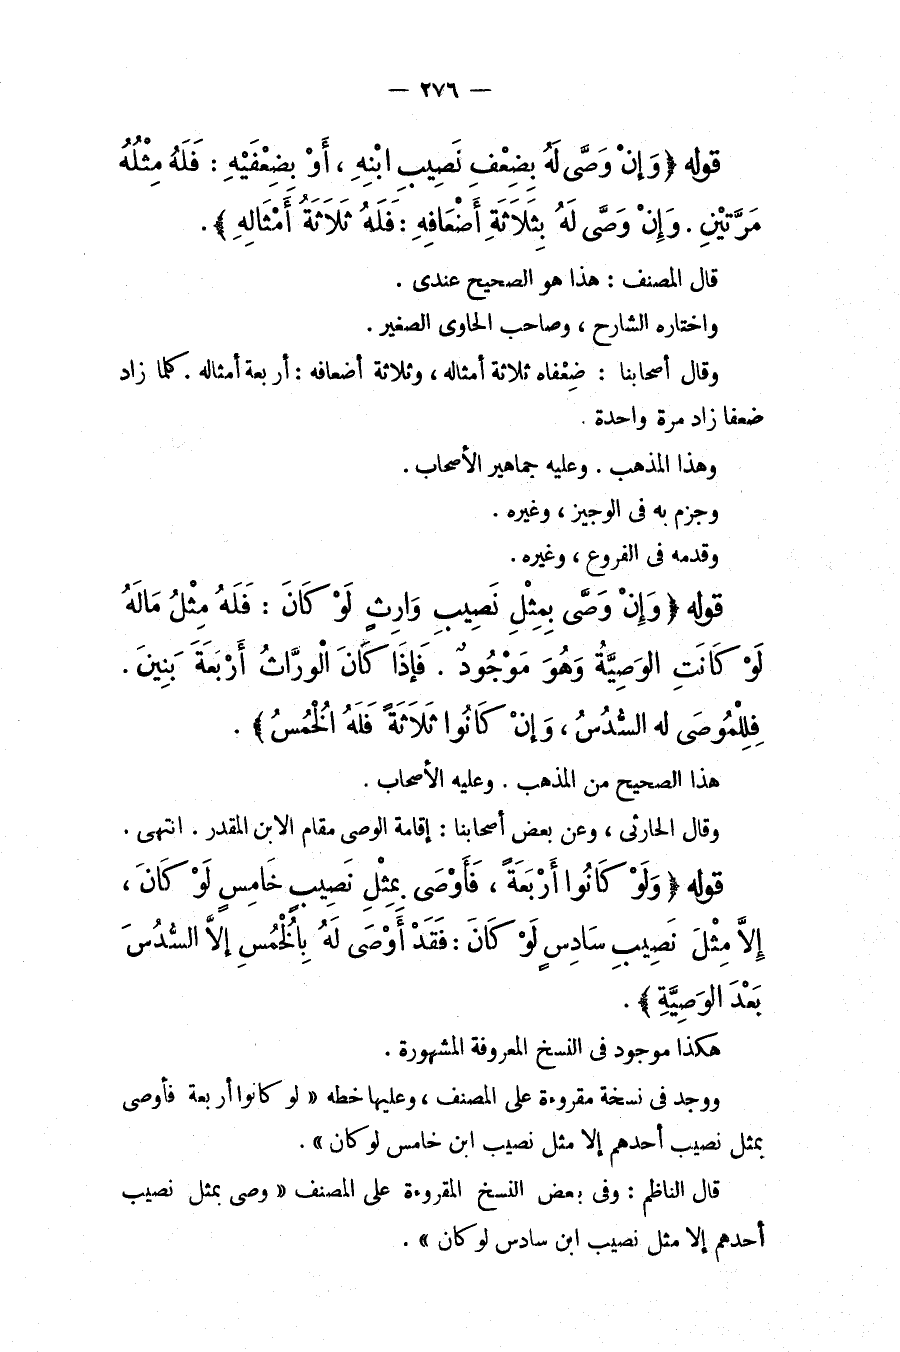 — ٢٧٦ —
قوله ﴿ وَإِنْ وَصَّى لَهُ بِضِعْفِ نَصِيبِ ابْنِهِ ، أَوْ بِضِعْفَيْهِ : فَلَهُ مِثْلُهُ
مَرَّتَيْنِ . وَإِنْ وَصَّى لَهُ بِثَلَاثَةِ أَضْعَافِهِ : فَلَهُ ثَلَاثَةُ أَمْثَالِهِ ﴾ .
قال المصنف : هذا هو الصحيح عندى .
واختاره الشارح ، وصاحب الحاوى الصغير .
وقال أصحابنا : ضِعْفاه ثلاثة أمثاله ، وثلاثة أضعافه : أربعة أمثاله . كلما زاد
ضعفا زاد مرة واحدة .
وهذا المذهب . وعليه جماهير الأصحاب .
وجزم به فى الوجيز ، وغيره .
وقدمه فى الفروع ، وغيره .
قوله ﴿ وَإِنْ وَصَّى بِمِثْلِ نَصِيبِ وَارِثٍ لَوْ كَانَ : فَلَهُ مِثْلُ مَالَهُ
لَوْ كَانَتِ الوَصِيَّةُ وَهُوَ مَوْجُودٌ . فَإِذَا كَانَ الْوُرَّاثُ أَرْبَعَةَ بَنِينَ .
فِللْمُوصَى له السُّدُسُ ، وَإِنْ كَانُوا ثَلَاثَةً فَلَهُ الْخُمُسُ ﴾ .
هذا الصحيح من المذهب . وعليه الأصحاب .
وقال الحارثى ، وعن بعض أصحابنا : إقامة الوصى مقام الابن المقدر . انتهى .
قوله ﴿ وَلَوْ كَانُوا أَرْبَعَةً ، فَأَوْصَى بِمِثْلِ نَصِيبِ خَامِسٍ لَوْ كَانَ ،
إِلاَّ مِثْلَ نَصِيبِ سَادِسٍ لَوْ كَانَ : فَقَدْ أَوْصَى لَهُ بِالْخُمُسِ إلاَّ السُّدُسَ
بَعْدَ الوَصِيَّةِ ﴾ .
هكذا موجود فى النسخ المعروفة المشهورة .
ووجد فى نسخة مقروءة على المصنف ، وعليها خطه « لو كانوا أربعة فأوصى
بمثل نصيب أحدهم إلا مثل نصيب ابن خامس لو كان » .
قال الناظم : وفى بعض النسخ المقروءة على المصنف « وصى بمثل نصيب
أحدهم إلا مثل نصيب ابن سادس لو كان » .